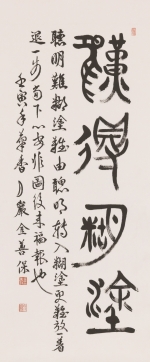 難得糊塗
聰明難糊塗難由聰明轉入糊塗更難放一著
退一步當下心安非圖後來福報也
壬寅年蘭香月嚴金善保